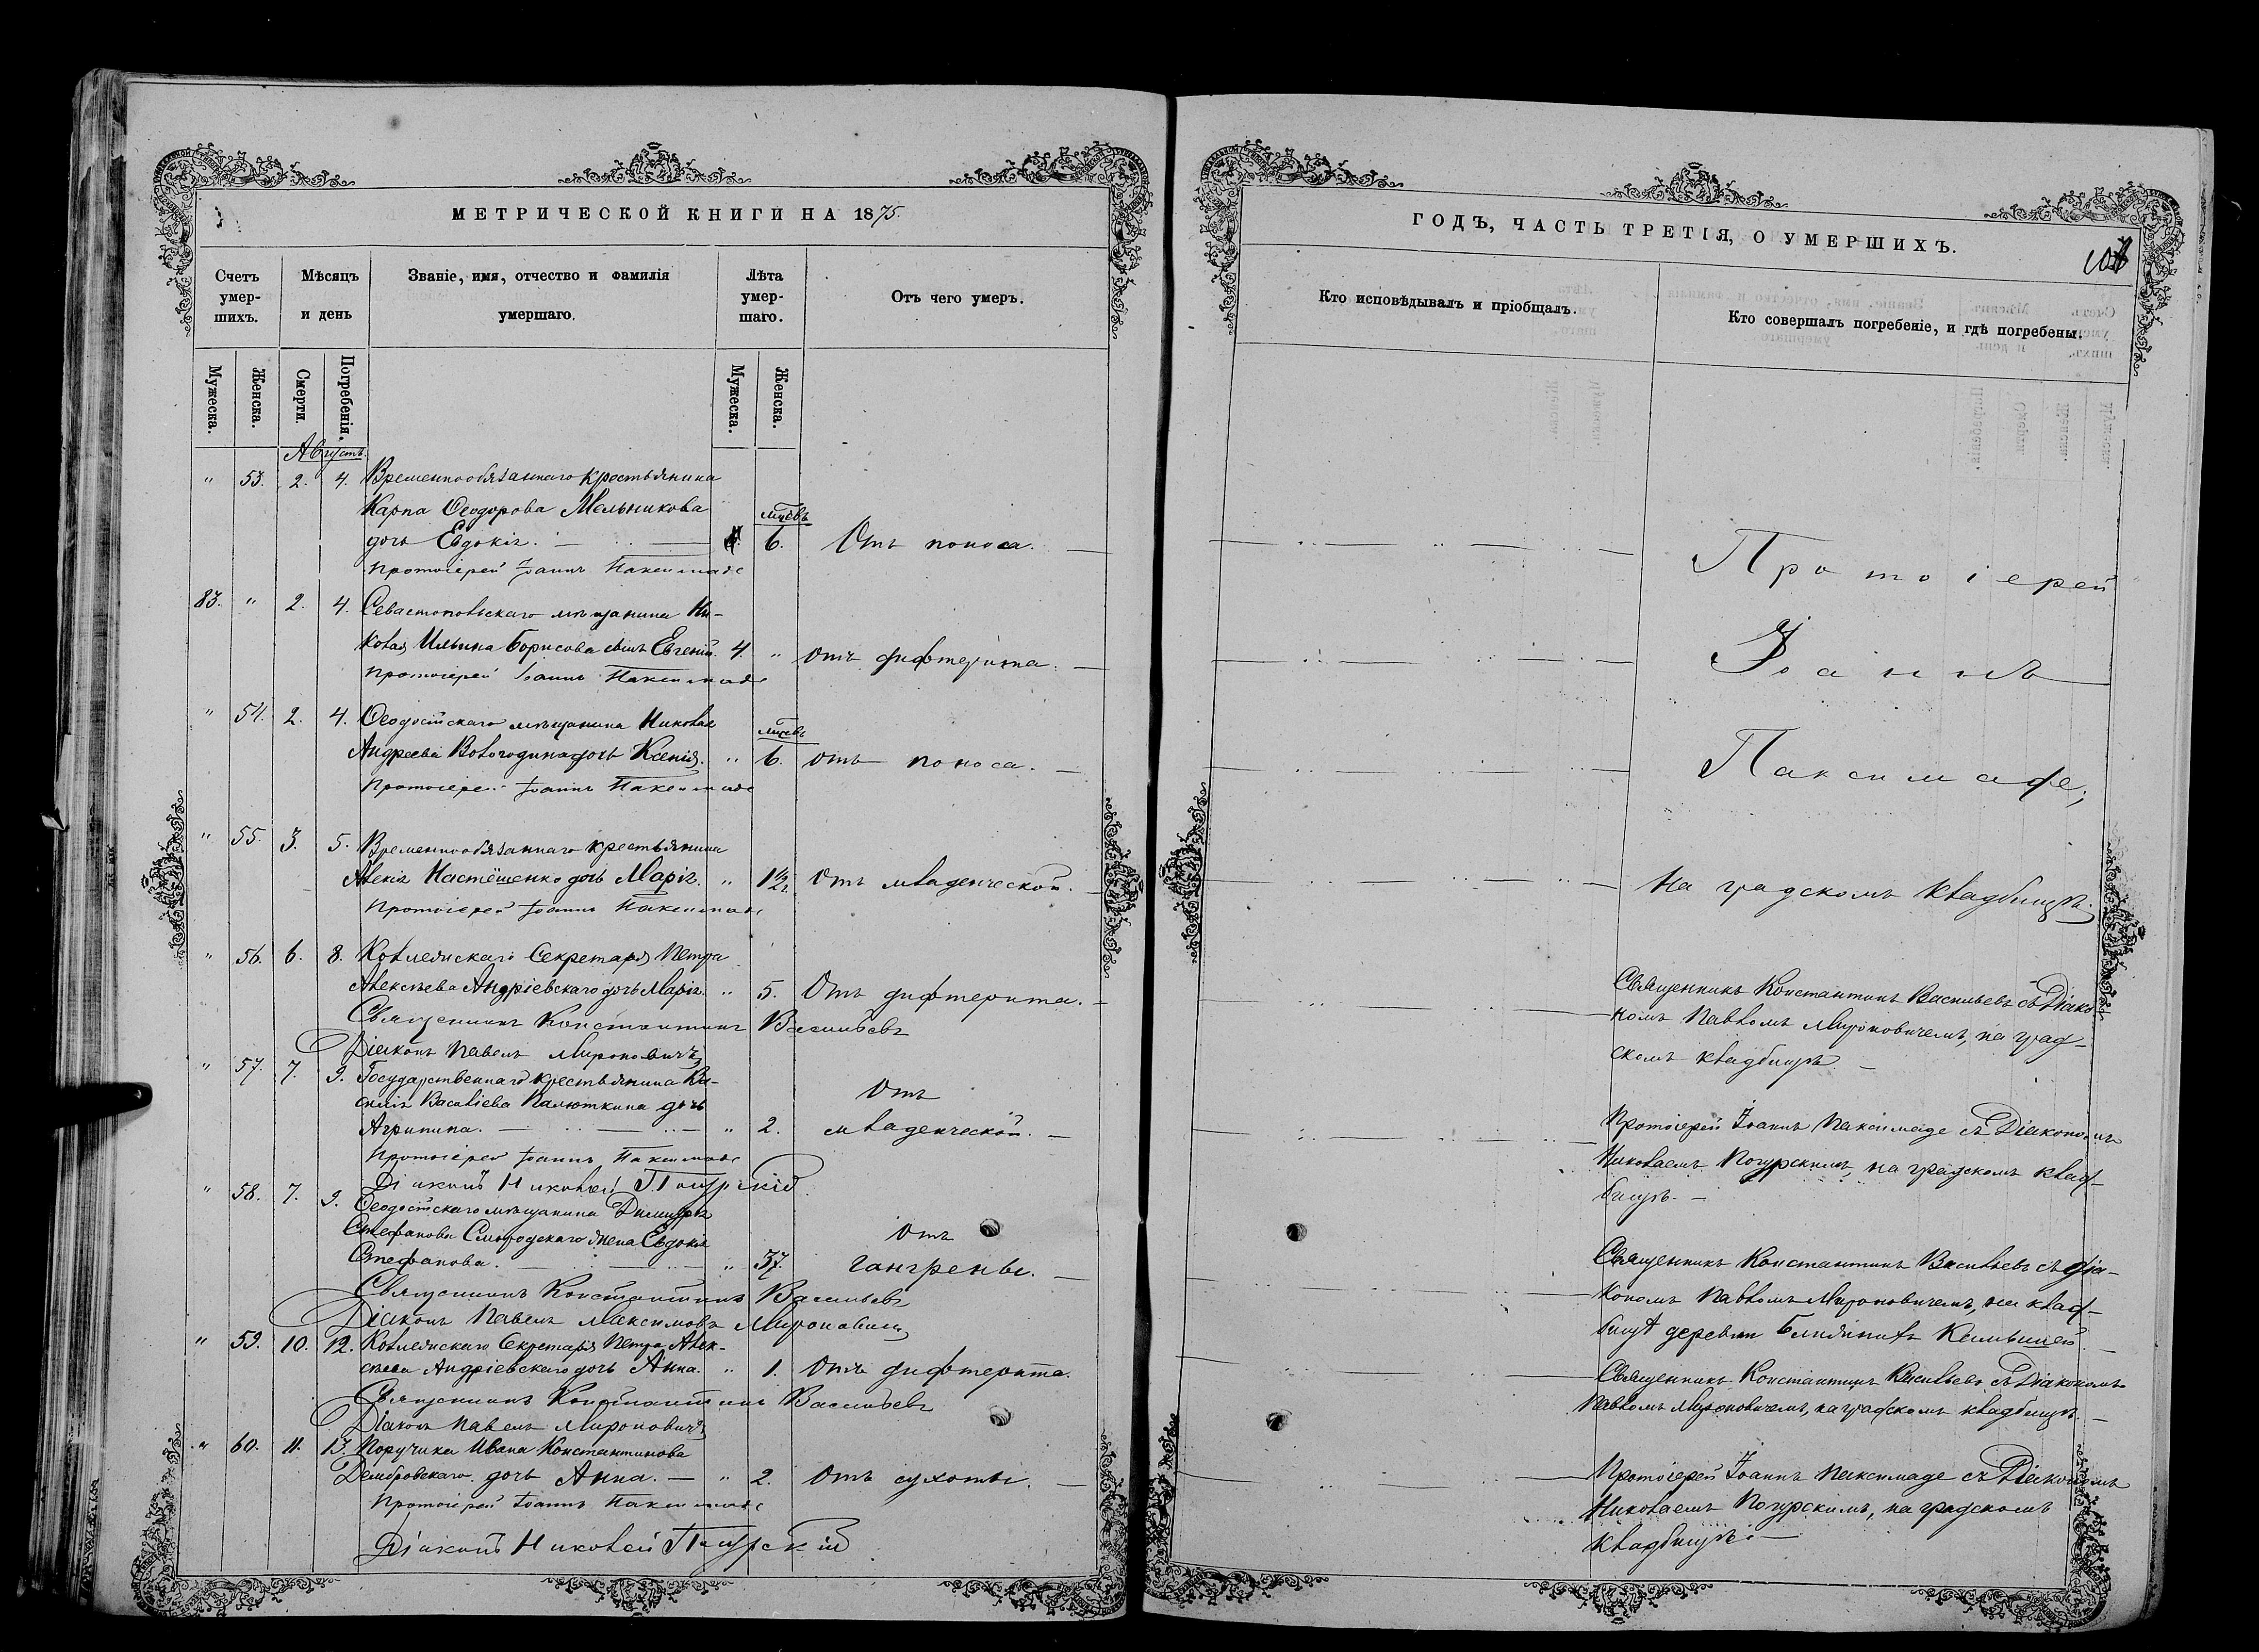 МЕТРИЧЕСКОЙ КНИГИ НА 1875.
Счетъ умер-шихъ.
Мѣсяцъ и день
Званіе, имя, отчество и фамилія умершаго.
Лѣта умер-шаго.
Отъ чего умеръ.
Мужеска.
Женска.
Смерти.
Погребенія.
Мужеска.
Женска.
Августъ.
" 53. 2. 4. Временнообязаннаго крестьянина
Карпа Ѳеодорова Мельникова
дочь Евдокія. 6. Отъ поноса.
Протоіерей Іоаннъ Паксимаде
83. " 2. 4. Севастопольскаго мѣщанина Ни-
колая Ильина Борисова сынъ Евгеній. 4. " отъ дифтерита.
Протоіерей Іоаннъ Паксимаде
" 54. 2. 4. Ѳеодосійскаго мѣщанина Николая
Андреева Вологодина дочь Ксенія. " 6. отъ поноса.
Протоіерей Іоаннъ Паксимаде
" 55. 3. 5. Временнообязаннаго крестьянина
дочь Марія. " 1 1/2 г. Отъ младенческой.
Протоіерей Іоаннъ Паксимаде
" 56. 6. 8. Коллежскаго Секретаря Петра
Алексѣева Андріевскаго дочь Марія. " 5. Отъ дифтерита.
Священникъ Константинъ Васильевъ
Діаконъ Павелъ Мироновичъ
" 57. 7. 9. Государственнаго крестьянина Ва-
силія Васильева дочь Отъ
Агрипина. " 2. младенческой.
Протоіерей Іоаннъ Паксимаде
Діаконъ Николай Погурскій
" 58. 7. 9. Ѳеодосійскаго мѣщанина Димитрія
Стефанова жена Евдокія Отъ
Стефанова. " 37. гангрены.
Священникъ Константинъ Васильевъ
Діаконъ Павелъ Максимовъ Мироновичъ
" 59. 10. 12. Коллежскаго Секретаря Петра Алек-
сѣева Андріевскаго дочь Анна. " 1. Отъ дифтерита.
Священникъ Константинъ Васильевъ
Діаконъ Павелъ Мироновичъ
" 60. 11. 13. Поручика Ивана Константинова
Дембровскаго дочь Анна. " 2. Отъ сухоты.
Протоіерей Іоаннъ Паксимаде
Діаконъ Николай Погурскій
ГОДЪ, ЧАСТЬ ТРЕТІЯ, О УМЕРШИХЪ.
Кто исповѣдывалъ и пріобщалъ.
Кто совершалъ погребеніе, и гдѣ погребены.
Протоіерей
Іоаннъ
Паксимаде,
на градскомъ кладбищѣ.
Священникъ Константинъ Васильевъ съ Діако-
номъ Павломъ Мироновичемъ, на град-
скомъ кладбищѣ.
Протоіерей Іоаннъ Паксимаде съ Діакономъ
Николаемъ Погурскимъ, на градскомъ клад-
бищѣ.
Священникъ Константинъ Васильевъ съ Діа-
кономъ Павломъ Мироновичемъ, на клад-
бищѣ деревни
Священникъ Константинъ Васильевъ съ Діакономъ
Павломъ Мироновичемъ, на градскомъ кладбищѣ.
Протоіерей Іоаннъ Паксимаде съ Діакономъ
Николаемъ Погурскимъ, на градскомъ
кладбищѣ.